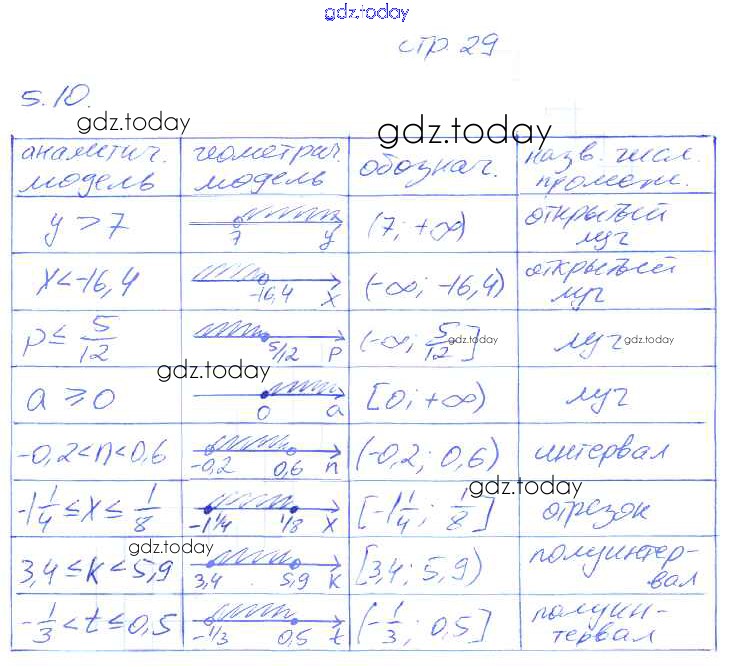 gdz.today
стр. 29
5.10.
gdz.today
gdz.today
аналитич. модель | геометрич. модель | обознач. | назв. числ. промеж.
y > 7 | 7 y | (7; +∞) | открытый луч
x < -16,4 | -16,4 x | (-∞; -16,4) | открытый луч
p ≤ 5/12 | 5/12 p | (-∞; 5/12] | луч
gdz.today
gdz.today
gdz.today
a ≥ 0 | 0 a | [0; +∞) | луч
-0,2 < n < 0,6 | -0,2 0,6 n | (-0,2; 0,6) | интервал
gdz.today
-1 1/4 ≤ x ≤ 1/8 | -1 1/4 1/8 x | [-1 1/4; 1/8] | отрезок
gdz.today
3,4 ≤ k < 5,9 | 3,4 5,9 k | [3,4; 5,9) | полуинтер-вал
-1/3 < t ≤ 0,5 | -1/3 0,5 t | (-1/3; 0,5] | полуин-тервал